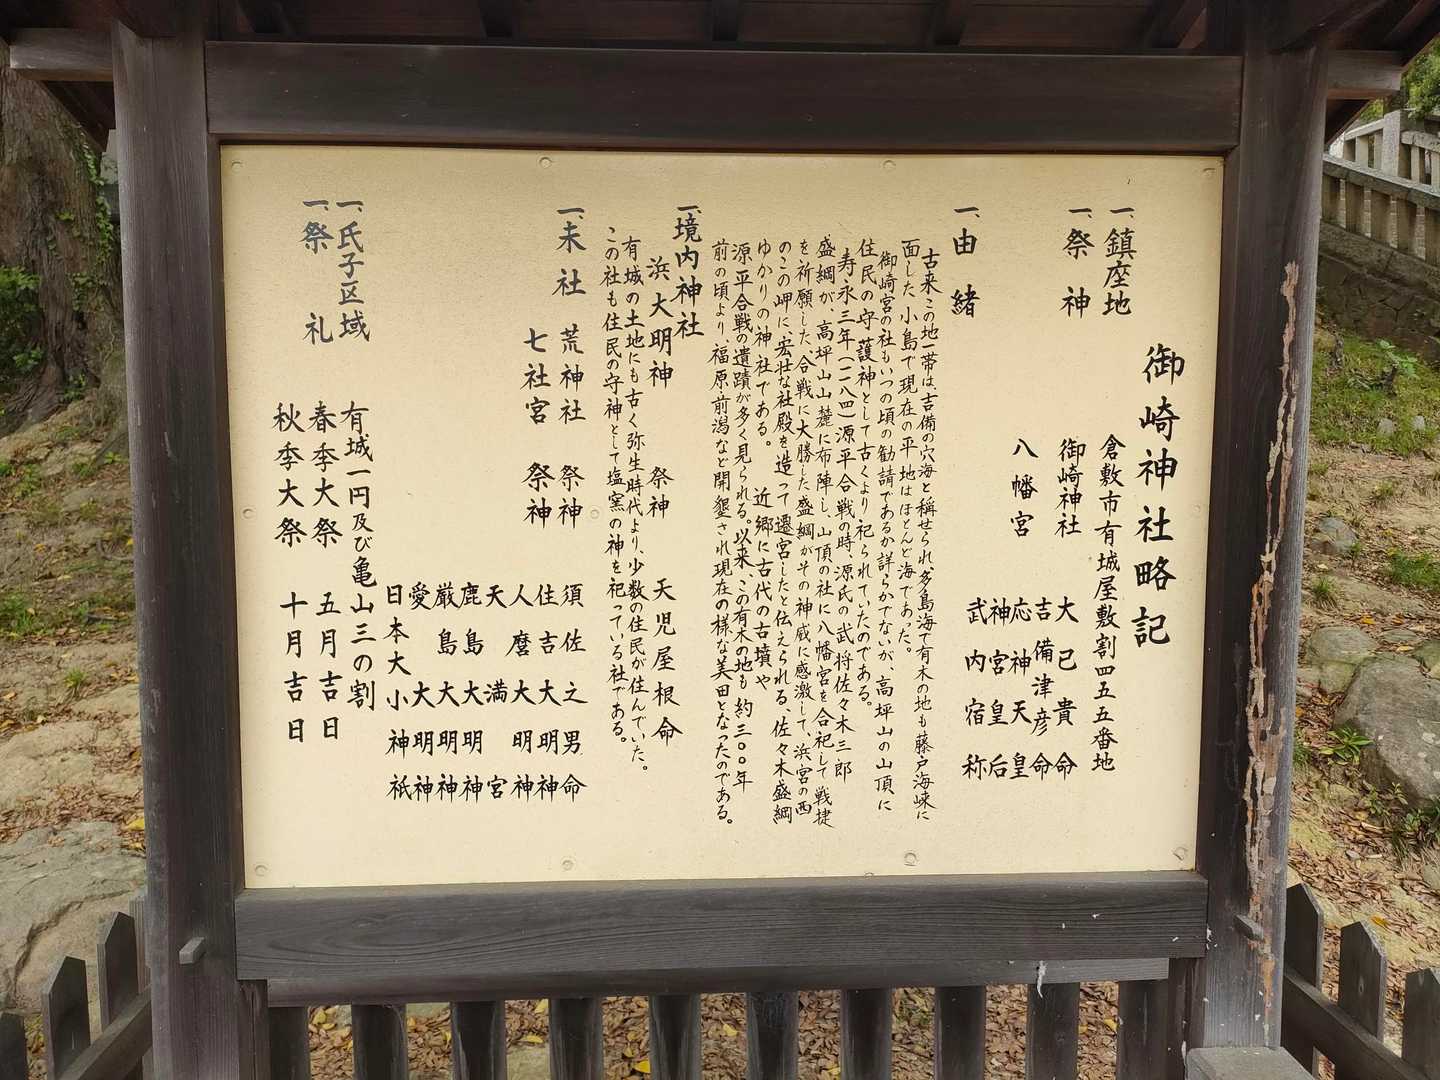 御崎神社略記
一、鎮座地 倉敷市有城屋敷割四五五番地
一、祭神 御崎神社 大己貴命
吉備津彦命
八幡宮 応神天皇
神宮皇后
武内宿称
一、由緒
古来この地一帯は、吉備の穴海と稱せられ多島海で有木の地も藤戸海峡に
面した、小島で現在の平地はほとんど海であった。
御崎宮の社もいつの頃の勧請であるか詳らかでないが、高坪山の山頂に
住民の守護神として古くより祀られていたのである。
寿永三年(一一八四)源平合戦の時、源氏の武将佐々木三郎
盛綱が、高坪山山麓に布陣し、山頂の社に八幡宮を合祀して戦捷
を祈願した、合戦に大勝した盛綱がその神威に感激して、浜宮の西
のこの岬に、宏壮な社殿を造って遷宮したと伝えられる、佐々木盛綱
ゆかりの神社である。 近郷に古代の古墳や
源平合戦の遺蹟が多く見られる。以来、この有木の地も約三〇〇年
前の頃より、福原前潟など開墾され現在の様な美田となったのである。
一、境内神社
浜大明神 祭神 天児屋根命
有城の土地にも古く弥生時代より、少数の住民が住んでいた。
この社も住民の守神として塩窯の神を祀っている社である。
一、末社 荒神社 祭神 須佐之男命
七社宮 祭神 住吉大明神
人麿大明神
天満宮
鹿島大明神
厳島大明神
愛大明神
日本大小神祇
一、氏子区域 有城一円及び亀山三の割
一、祭礼 春季大祭 五月吉日
秋季大祭 十月吉日